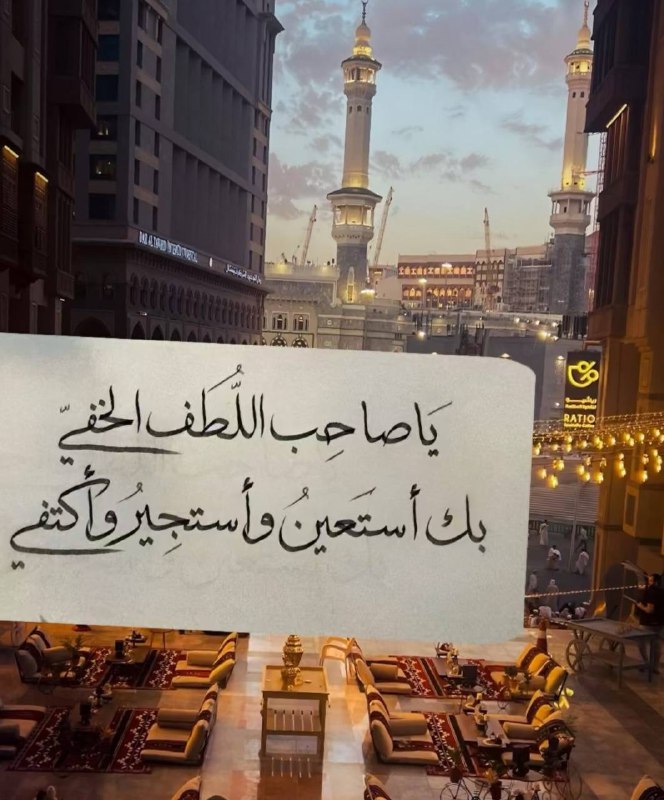 يَا صاحِب اللُّطَف الخفيّ
بك أستَعينُ وأستجِيرُ وأكتفي
RATIO